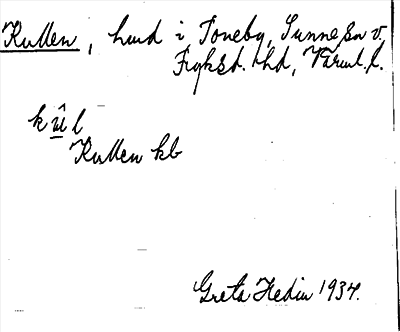 Kullen, hmd i Toneby, Sunne sn v.
Fryksd. hd, Värml. l.
kûl
Kullen kb
Greta Hedin 1934.